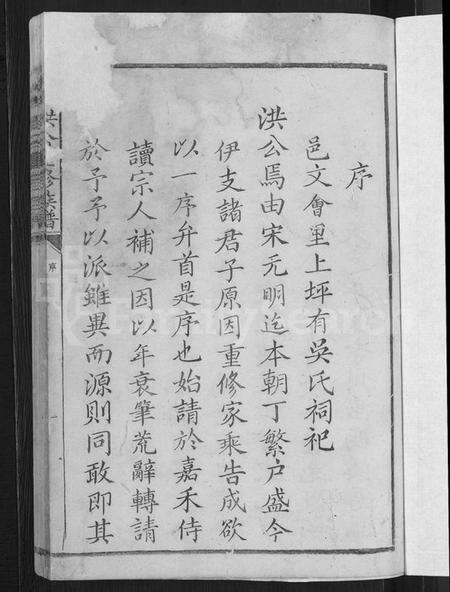 序
邑文會里上坪有吳氏祠祀
洪公焉由宋元明迄本朝丁繁户盛今
伊支諸君子原因重修家乘告成欲
以一序弁首是序也始請於嘉禾侍
讀宗人補之因以年衰筆荒辭轉請
於予予以派雖異而源則同敢即其
洪公 修族譜
序